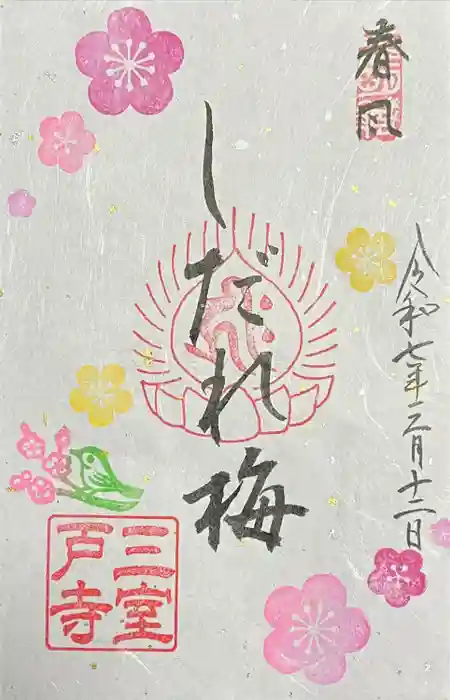 春風
しだれ梅
令和七年三月十二日
三室
戸寺